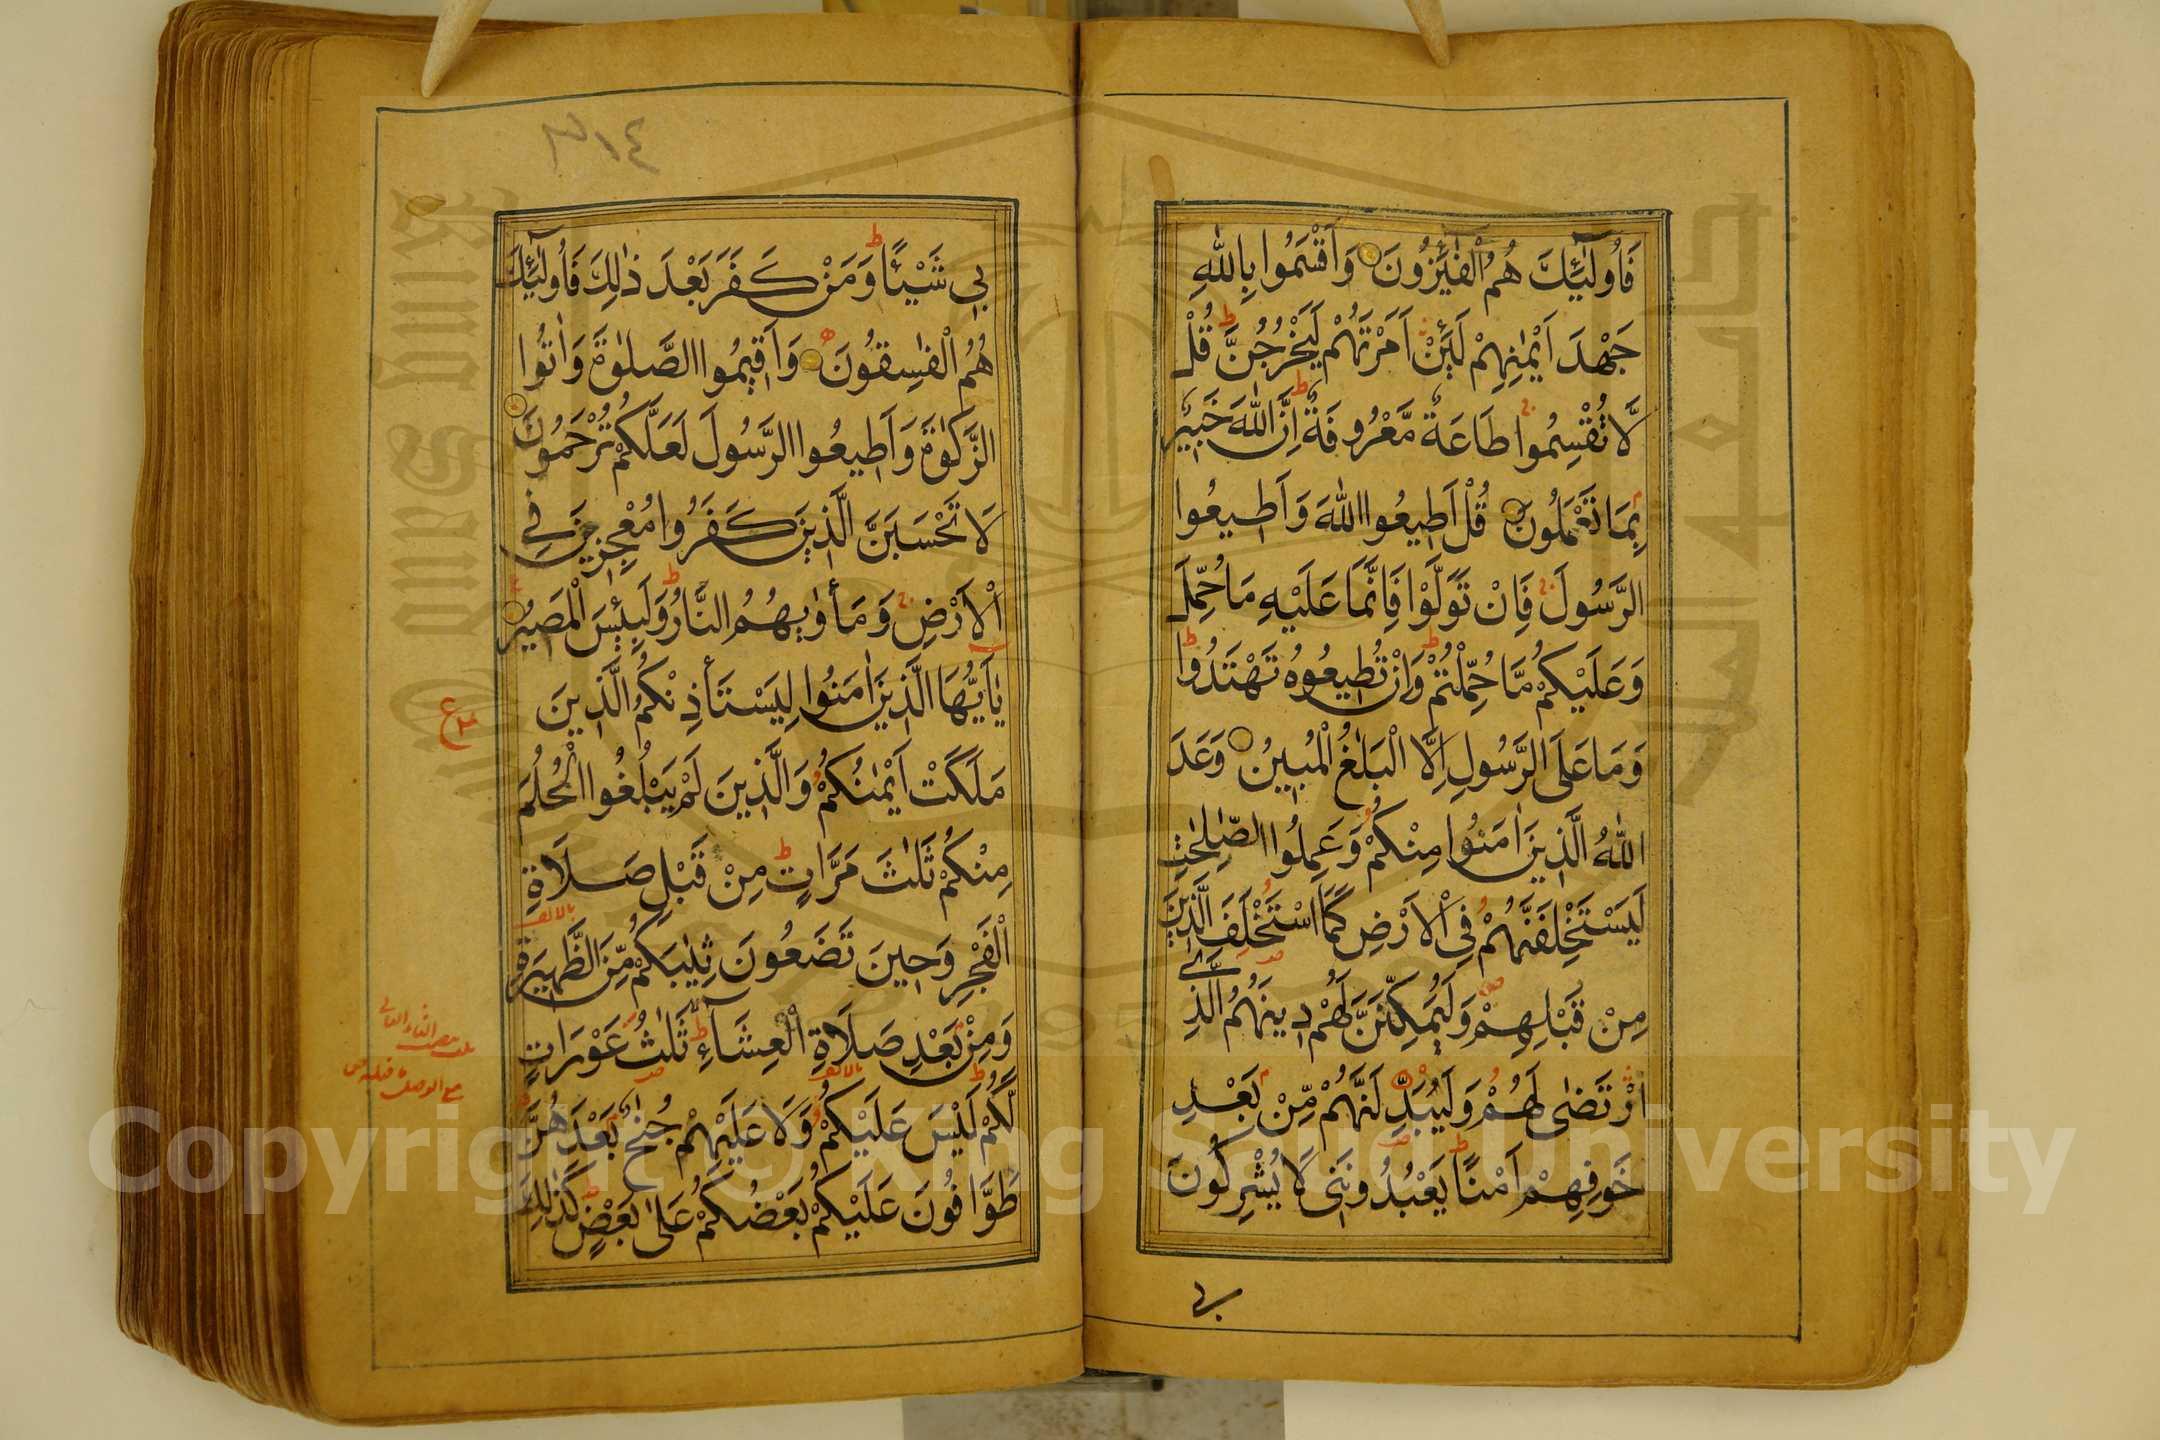 فَاُولٰٓئِكَ هُمُ الْفَآئِزُونَ وَاَقْسَمُوا بِاللّٰهِ
جَهْدَ اَيْمٰنِهِمْ لَئِنْ اَمَرْتَهُمْ لَيَخْرُجُنَّ قُلْ
لَّا تُقْسِمُوا طَاعَةٌ مَّعْرُوفَةٌ اِنَّ اللّٰهَ خَبِيرٌ
بِمَا تَعْمَلُونَ قُلْ اَطِيعُوا اللّٰهَ وَاَطِيعُوا
الرَّسُولَ فَاِنْ تَوَلَّوْا فَاِنَّمَا عَلَيْهِ مَا حُمِّلَ
وَعَلَيْكُمْ مَّا حُمِّلْتُمْ وَاِنْ تُطِيعُوهُ تَهْتَدُوا
وَمَا عَلَى الرَّسُولِ اِلَّا الْبَلٰغُ الْمُبِينُ وَعَدَ
اللّٰهُ الَّذِينَ اٰمَنُوا مِنْكُمْ وَعَمِلُوا الصّٰلِحٰتِ
لَيَسْتَخْلِفَنَّهُمْ فِي الْاَرْضِ كَمَا اسْتَخْلَفَ الَّذِينَ
مِنْ قَبْلِهِمْ وَلَيُمَكِّنَنَّ لَهُمْ دِينَهُمُ الَّذِي
ارْتَضٰى لَهُمْ وَلَيُبَدِّلَنَّهُمْ مِّنْ بَعْدِ
خَوْفِهِمْ اَمْنًا يَعْبُدُونَنِي لَا يُشْرِكُونَ
بي
٣١٤
بِي شَيْئًا وَمَنْ كَفَرَ بَعْدَ ذٰلِكَ فَاُولٰٓئِكَ
هُمُ الْفٰسِقُونَ وَاَقِيمُوا الصَّلٰوةَ وَاٰتُوا
الزَّكٰوةَ وَاَطِيعُوا الرَّسُولَ لَعَلَّكُمْ تُرْحَمُونَ
لَا تَحْسَبَنَّ الَّذِينَ كَفَرُوا مُعْجِزِينَ فِي
الْاَرْضِ وَمَأْوٰىهُمُ النَّارُ وَلَبِئْسَ الْمَصِيرُ
يٰٓاَيُّهَا الَّذِينَ اٰمَنُوا لِيَسْتَأْذِنْكُمُ الَّذِينَ
مَلَكَتْ اَيْمٰنُكُمْ وَالَّذِينَ لَمْ يَبْلُغُوا الْحُلُمَ
مِنْكُمْ ثَلٰثَ مَرَّاتٍ مِنْ قَبْلِ صَلَاةِ
الْفَجْرِ وَحِينَ تَضَعُونَ ثِيَابَكُمْ مِّنَ الظَّهِيرَةِ
وَمِنْ بَعْدِ صَلَاةِ الْعِشَآءِ ثَلٰثُ عَوْرَاتٍ
لَّكُمْ لَيْسَ عَلَيْكُمْ وَلَا عَلَيْهِمْ جُنَاحٌ بَعْدَهُنَّ
طَوَّافُونَ عَلَيْكُمْ بَعْضُكُمْ عَلٰى بَعْضٍ كَذٰلِكَ
Copyright © King Saud University